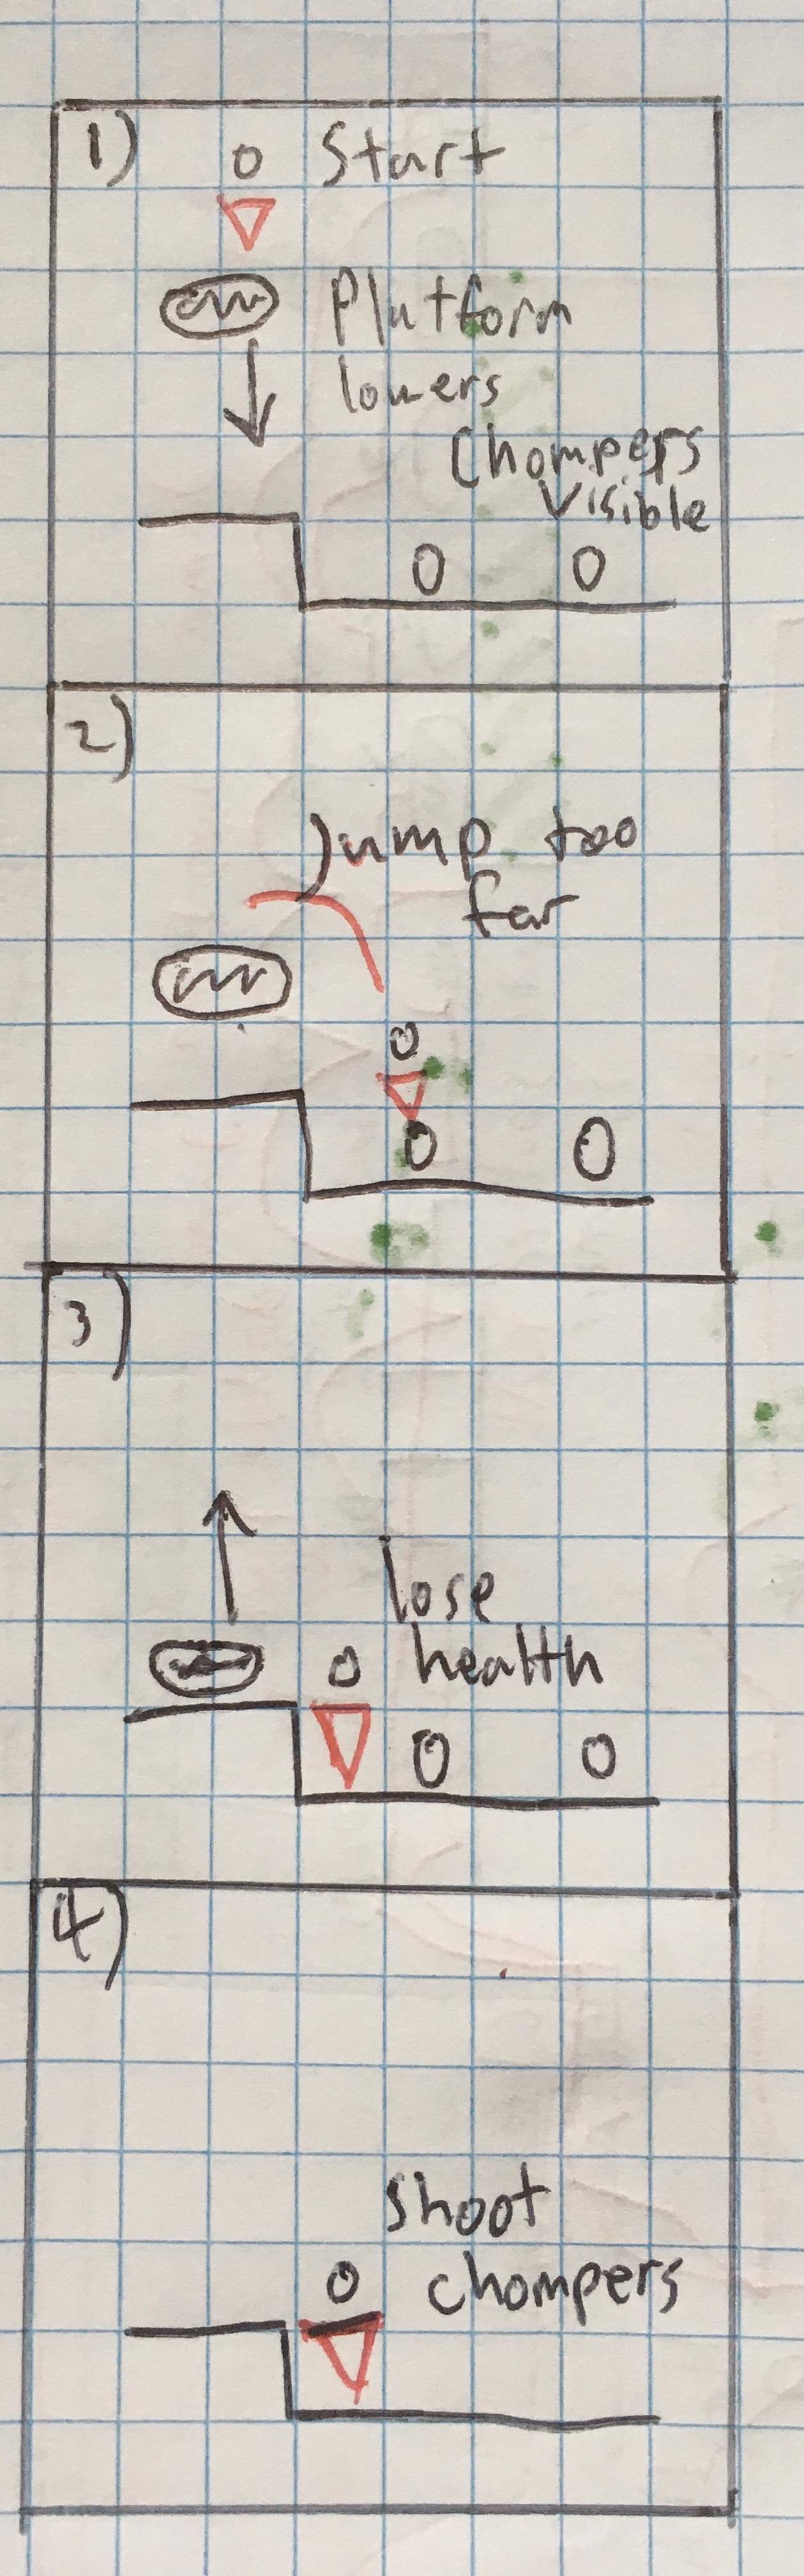 1) Start
Platform
lowers
Chompers
Visible
2)
Jump too
far
3)
lose
health
4)
Shoot
chompers